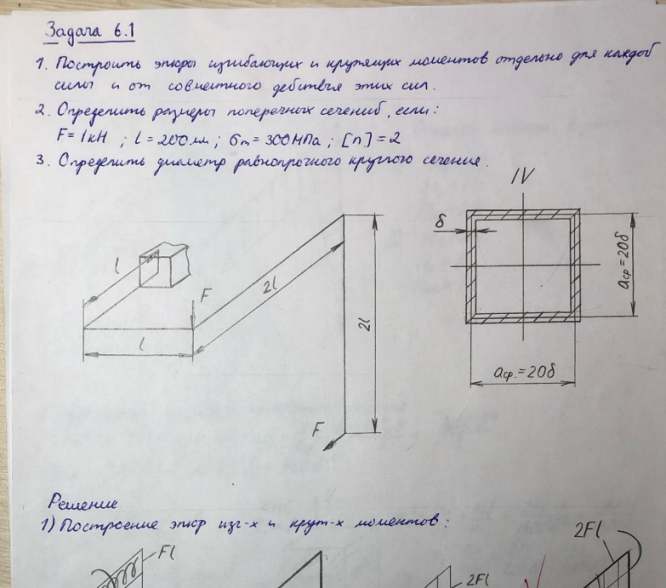 Задача 6.1
1. Построить эпюры изгибающих и крутящих моментов отдельно для каждой
силы и от совместного действия этих сил.
2. Определить размеры поперечных сечений, если:
F=1кН ; l=200мм ; σт=300МПа ; [n]=2
3. Определить диаметр равнопрочного круглого сечения.
IV
δ
l
F
2l
2l
aср=20δ
l
aср.=20δ
F
Решение
1) Построение эпюр изг-х и крут-х моментов:
Fl
2Fl
2Fl